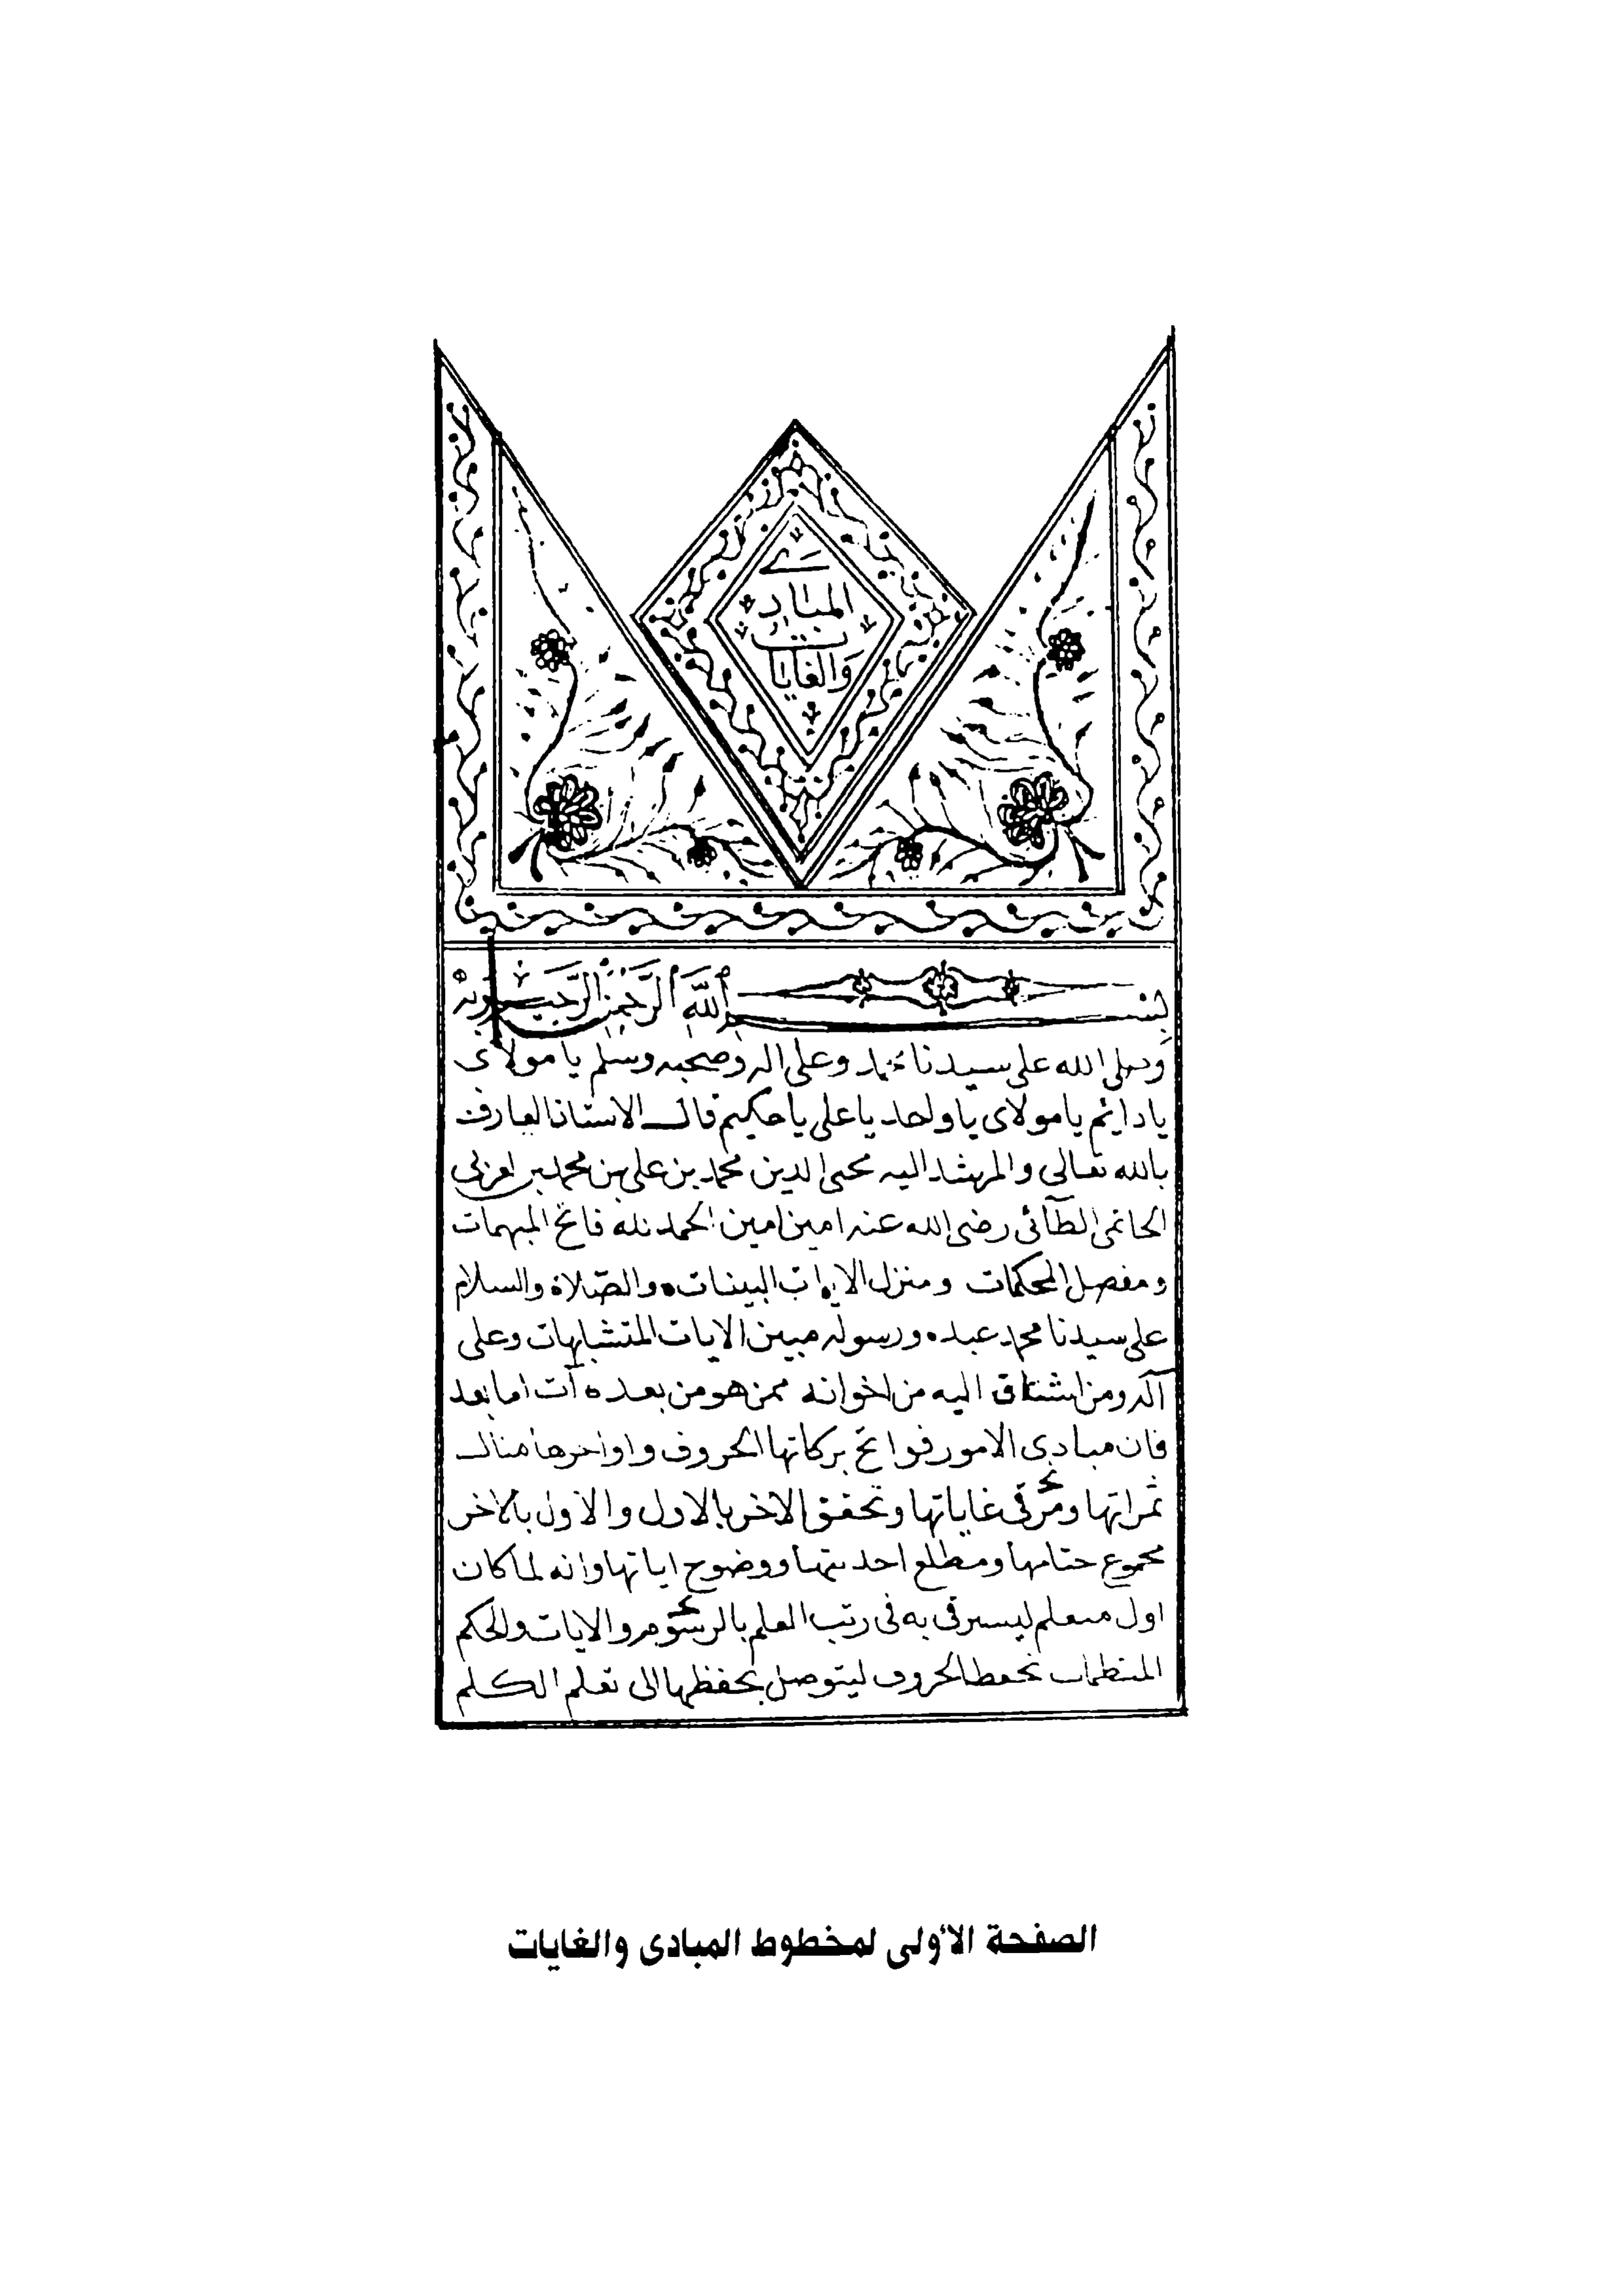 المبادي
والغايات
بسم الله الرحمن الرحيم وبه
وصلى الله على سيدنا محمد وعلى اله وصحبه وسلم يا مولاي
يا دايم يا مولاى يا واحد يا على يا حكيم قال الاستاذ العارف
بالله تعالى والمرشد اليه محى الدين محمد بن على بن محمد بن العربى
الحاتمى الطآئى رضى الله عنه امين امين الحمد لله فاتح المبهمات
ومفصل المحكمات ومنزل الايات البينات والصلاة والسلام
على سيدنا محمد عبده ورسوله مبين الايات المتشابهات وعلى
آله ومن اشتاق اليه من اخوانه ممن هو من بعده آت اما بعد
فان مبادى الامور فواتح بركاتها الحروف واواخرها منال
ثمراتها ومرقى غاياتها وتحقق الاخر بالاول والاول بالاخر
مجموع ختامها ومطلع احديتها ووضوح اياتها وانه لما كان
اول متعلم ليسترقى به فى رتب العلم بالرسوم والايات والحكم
المنتظمات تحفظ الحروف ليتوصل بحفظها الى تعلم الكلم
الصفحة الأولى لمخطوط المبادى والغايات